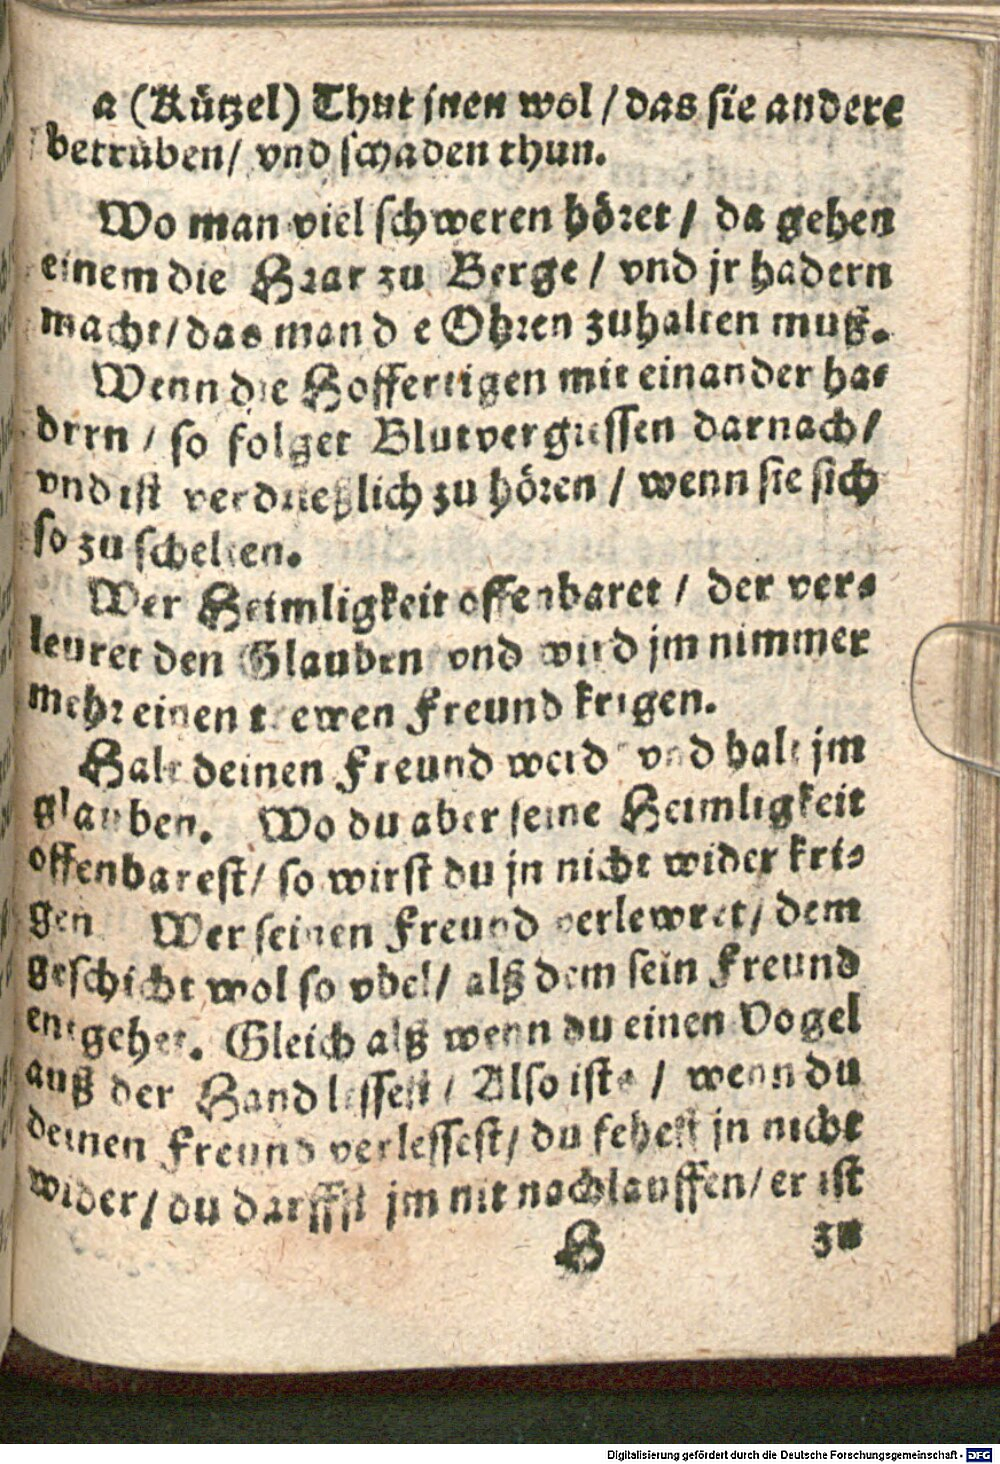 a (Kützel) Thut jnen wol / das sie andere
betrüben / vnd schaden thun.
Wo man viel schweren höret / da gehen
einem die Haar zu Berge / vnd jr hadern
macht / das man die Ohren zuhalten muß.
Wenn die Hoffertigen mit einander ha-
drrn / so folget Blutvergiessen darnach /
vnd ist verdrießlich zu hören / wenn sie sich
so zu schelten.
Wer Heimligkeit offenbaret / der ver-
leuret den Glauben vnd wird jm nimmer
mehr einen trewen Freund krigen.
Halt deinen Freund werd vnd halt jm
glauben. Wo du aber seine Heimligkeit
offenbarest / so wirst du jn nicht wider kri-
gen Wer seinen Freund verlewret / dem
geschicht wol so vbel / alß dem sein Freund
entgehet. Gleich alß wenn du einen Vogel
auß der Hand lessest / Also ists / wenn du
deinen Freund verlessest / du fehest jn nicht
wider / du darffst jm nit nachlauffen / er ist
H zu
Digitalisierung gefördert durch die Deutsche Forschungsgemeinschaft - DFG